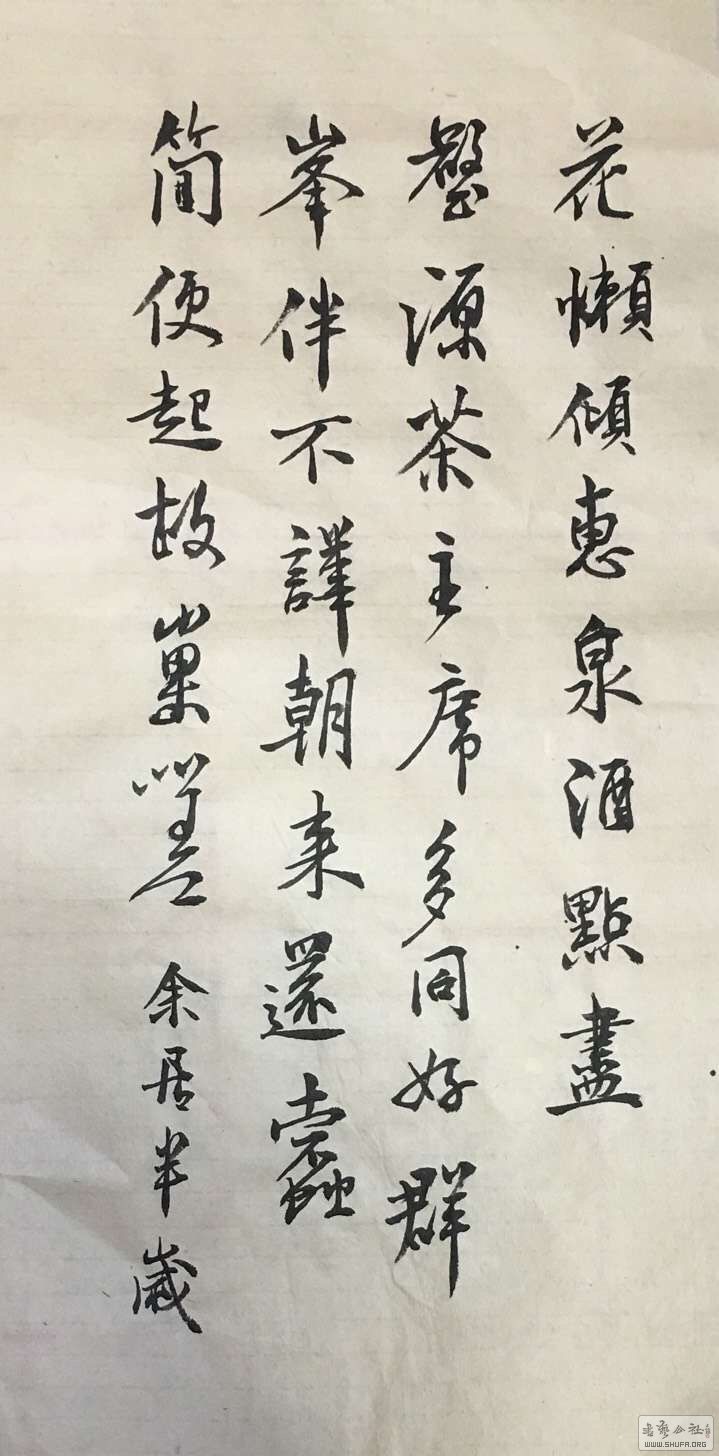 花懶傾惠泉酒點盡
壑源茶主席多同好群
峯伴不譁朝来還蠹
簡便起故巢嗟余居半歲
WWW.SHUFA.ORG